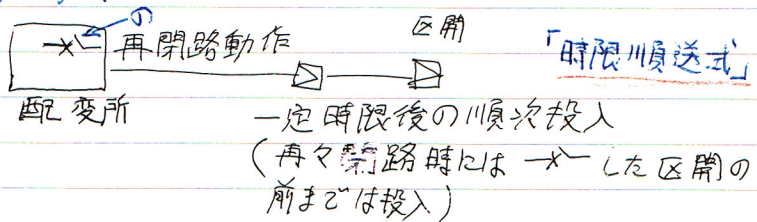 の
再閉路動作
区開
「時限順送式」
配変所
一定時限後の順次投入
(再々閉路時には した区開の
前までは投入)